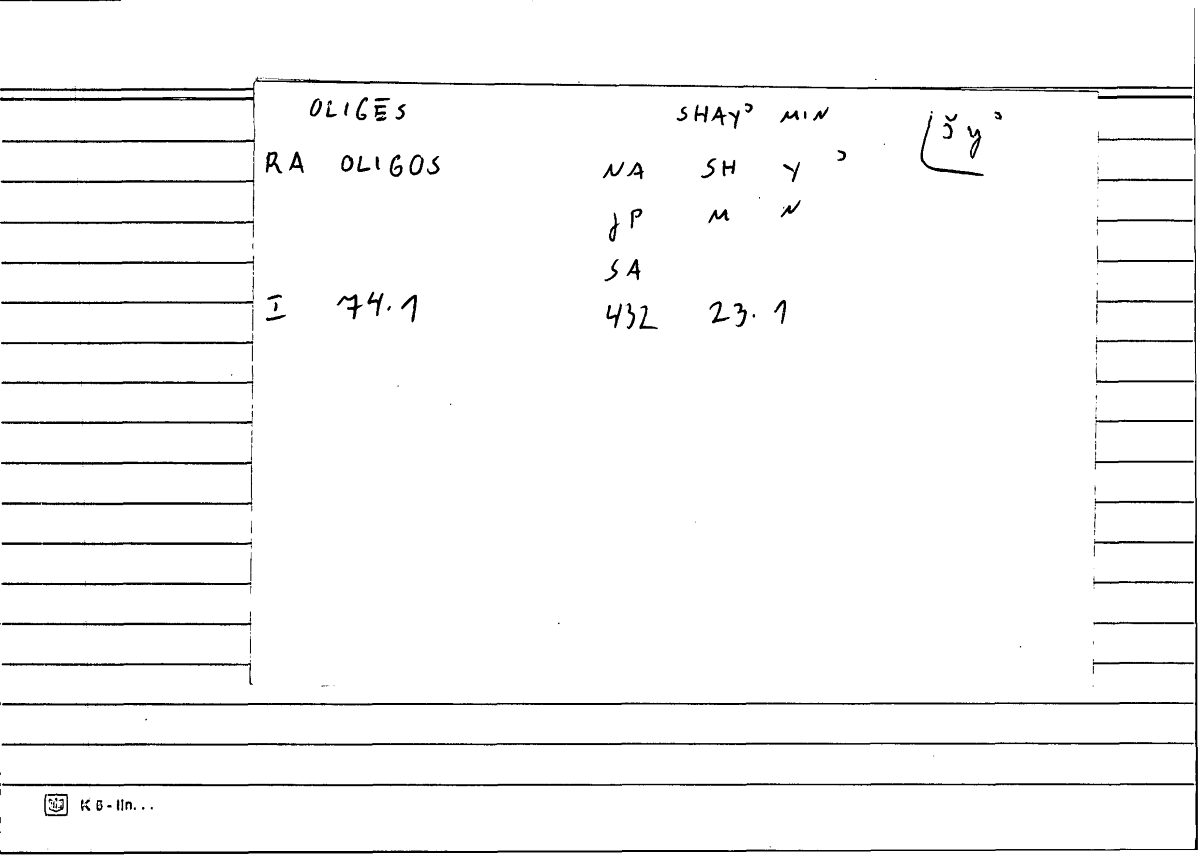 OLIGĒS SHAYʾ MIN šyʾ
RA OLIGOS NA SH Y ʾ
JP M N
SA
I 74.1 432 23.1
K 6-lin...